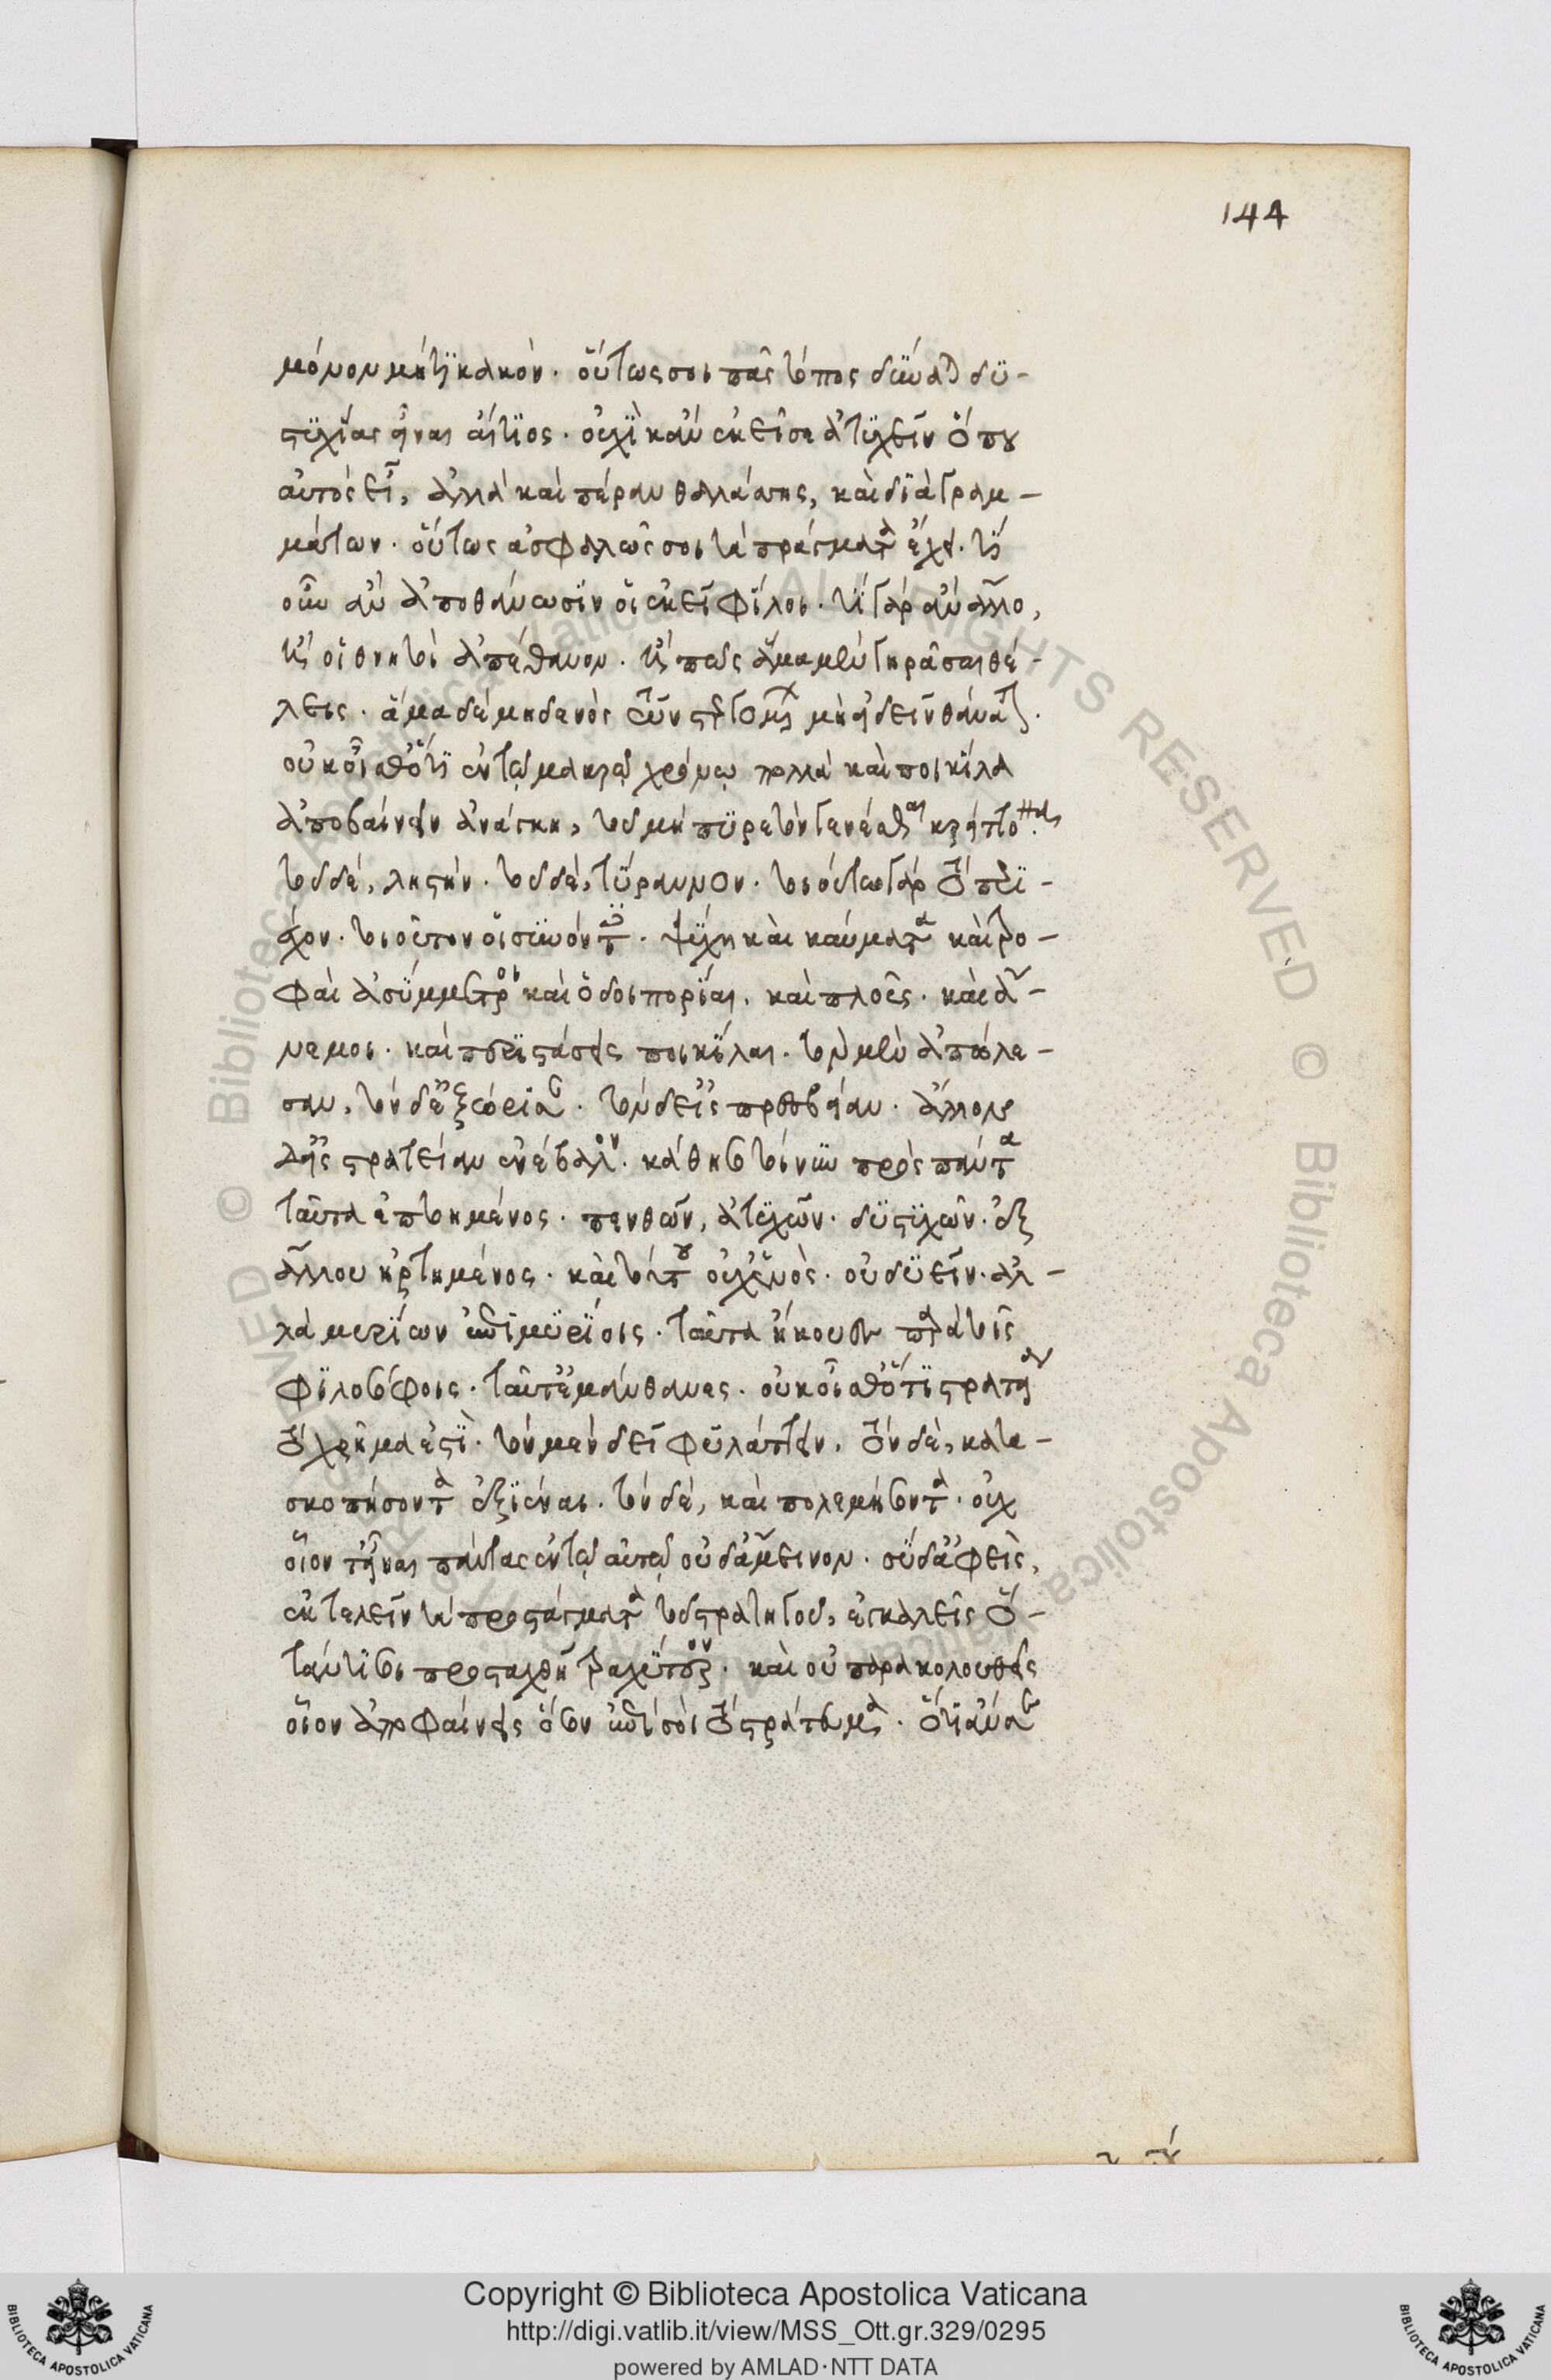 144
μόνον μή τι κακόν. οὕτως σοι πᾶς τόπος δύναται δυ-
στυχίας εἶναι αἴτιος. οὐχὶ κἂν ἐκεῖ σε ἀτυχεῖν ὅπου
αὐτὸς εἶ, ἀλλὰ καὶ πέραν θαλάσσης, καὶ διὰ γραμ-
μάτων. οὕτως ἀσφαλῶς σοι τὰ πράγματα ἔχει. τί
οὖν ἂν ἀποθάνωσιν οἱ ἐκεῖ φίλοι. τί γὰρ ἂν ἄλλο,
ἢ οἱ θνητοὶ ἀπέθανον. ἢ πῶς ἅμα μὲν γηρᾶσαι θέ-
λεις. ἅμα δὲ μηδενὸς τῶν στεργομένων μὴ ἰδεῖν θάνατον.
οὐκ οἶσθ' ὅτι ἐν τῷ μακρῷ χρόνῳ πολλὰ καὶ ποικίλα
ἀποβαίνειν ἀνάγκη, τοῦ μὲν πυρετὸν γενέσθαι κρείττονα.
τοῦ δὲ, ληστήν. τοῦ δὲ, τύραννον. τοιοῦτο γὰρ τὸ περι-
έχον. τοιοῦτον οἱ συνόντες. ψύχη καὶ καύματα καὶ τρο-
φαὶ ἀσύμμετροι καὶ ὁδοιπορίαι. καὶ πλοῦς. καὶ ἄ-
νεμοι. καὶ περιστάσεις ποικίλαι. τὸν μὲν ἀπώλε-
σαν, τὸν δ' ἐξώρισαν. τὸν δ' εἰς πρεσβείαν. ἄλλον
δ' εἰς στρατείαν ἐνέβαλον. κάθησο τοίνυν πρὸς πάντα
ταῦτα ἐπτοημένος. πενθῶν, ἀτυχῶν. δυστυχῶν. ἐξ
ἄλλου ἠρτημένος. καὶ τούτου οὐχ ἑνὸς. οὐ δυεῖν. ἀλ-
λὰ μυρίων ἐπὶ μυρίοις. ταῦτα ἤκουες παρὰ τοῖς
φιλοσόφοις. ταῦτ' ἐμάνθανες. οὐκ οἶσθ' ὅτι στρατεία
τὸ χρῆμα ἐστὶ. τὸν μὲν δεῖ φυλάττειν. τὸν δὲ, κατα-
σκοπήσοντα ἐξιέναι. τὸν δὲ, καὶ πολεμήσοντα. οὐχ
οἷον τ' εἶναι πάντας ἐν τῷ αὐτῷ οὐδ' ἄμεινον. σὺ δ' ἀφεὶς,
ἐκτελεῖν τὰ προστάγματα τοῦ στρατηγοῦ, ἐγκαλεῖς ὅ-
ταν τί σοι προσταχθῇ τραχύτερον. καὶ οὐ παρακολουθεῖς
οἷον ἀποφαίνεις ὅσον ἐπὶ σοὶ τὸ στράτευμα. ὅτι ἄν σε
Copyright © Biblioteca Apostolica Vaticana
http://digi.vatlib.it/view/MSS_Ott.gr.329/0295
powered by AMLAD·NTT DATA